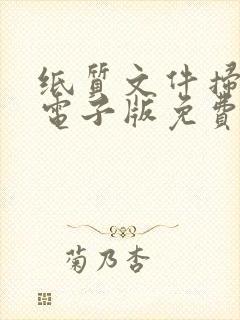 纸質文件掃
電子版免費
菊乃杏